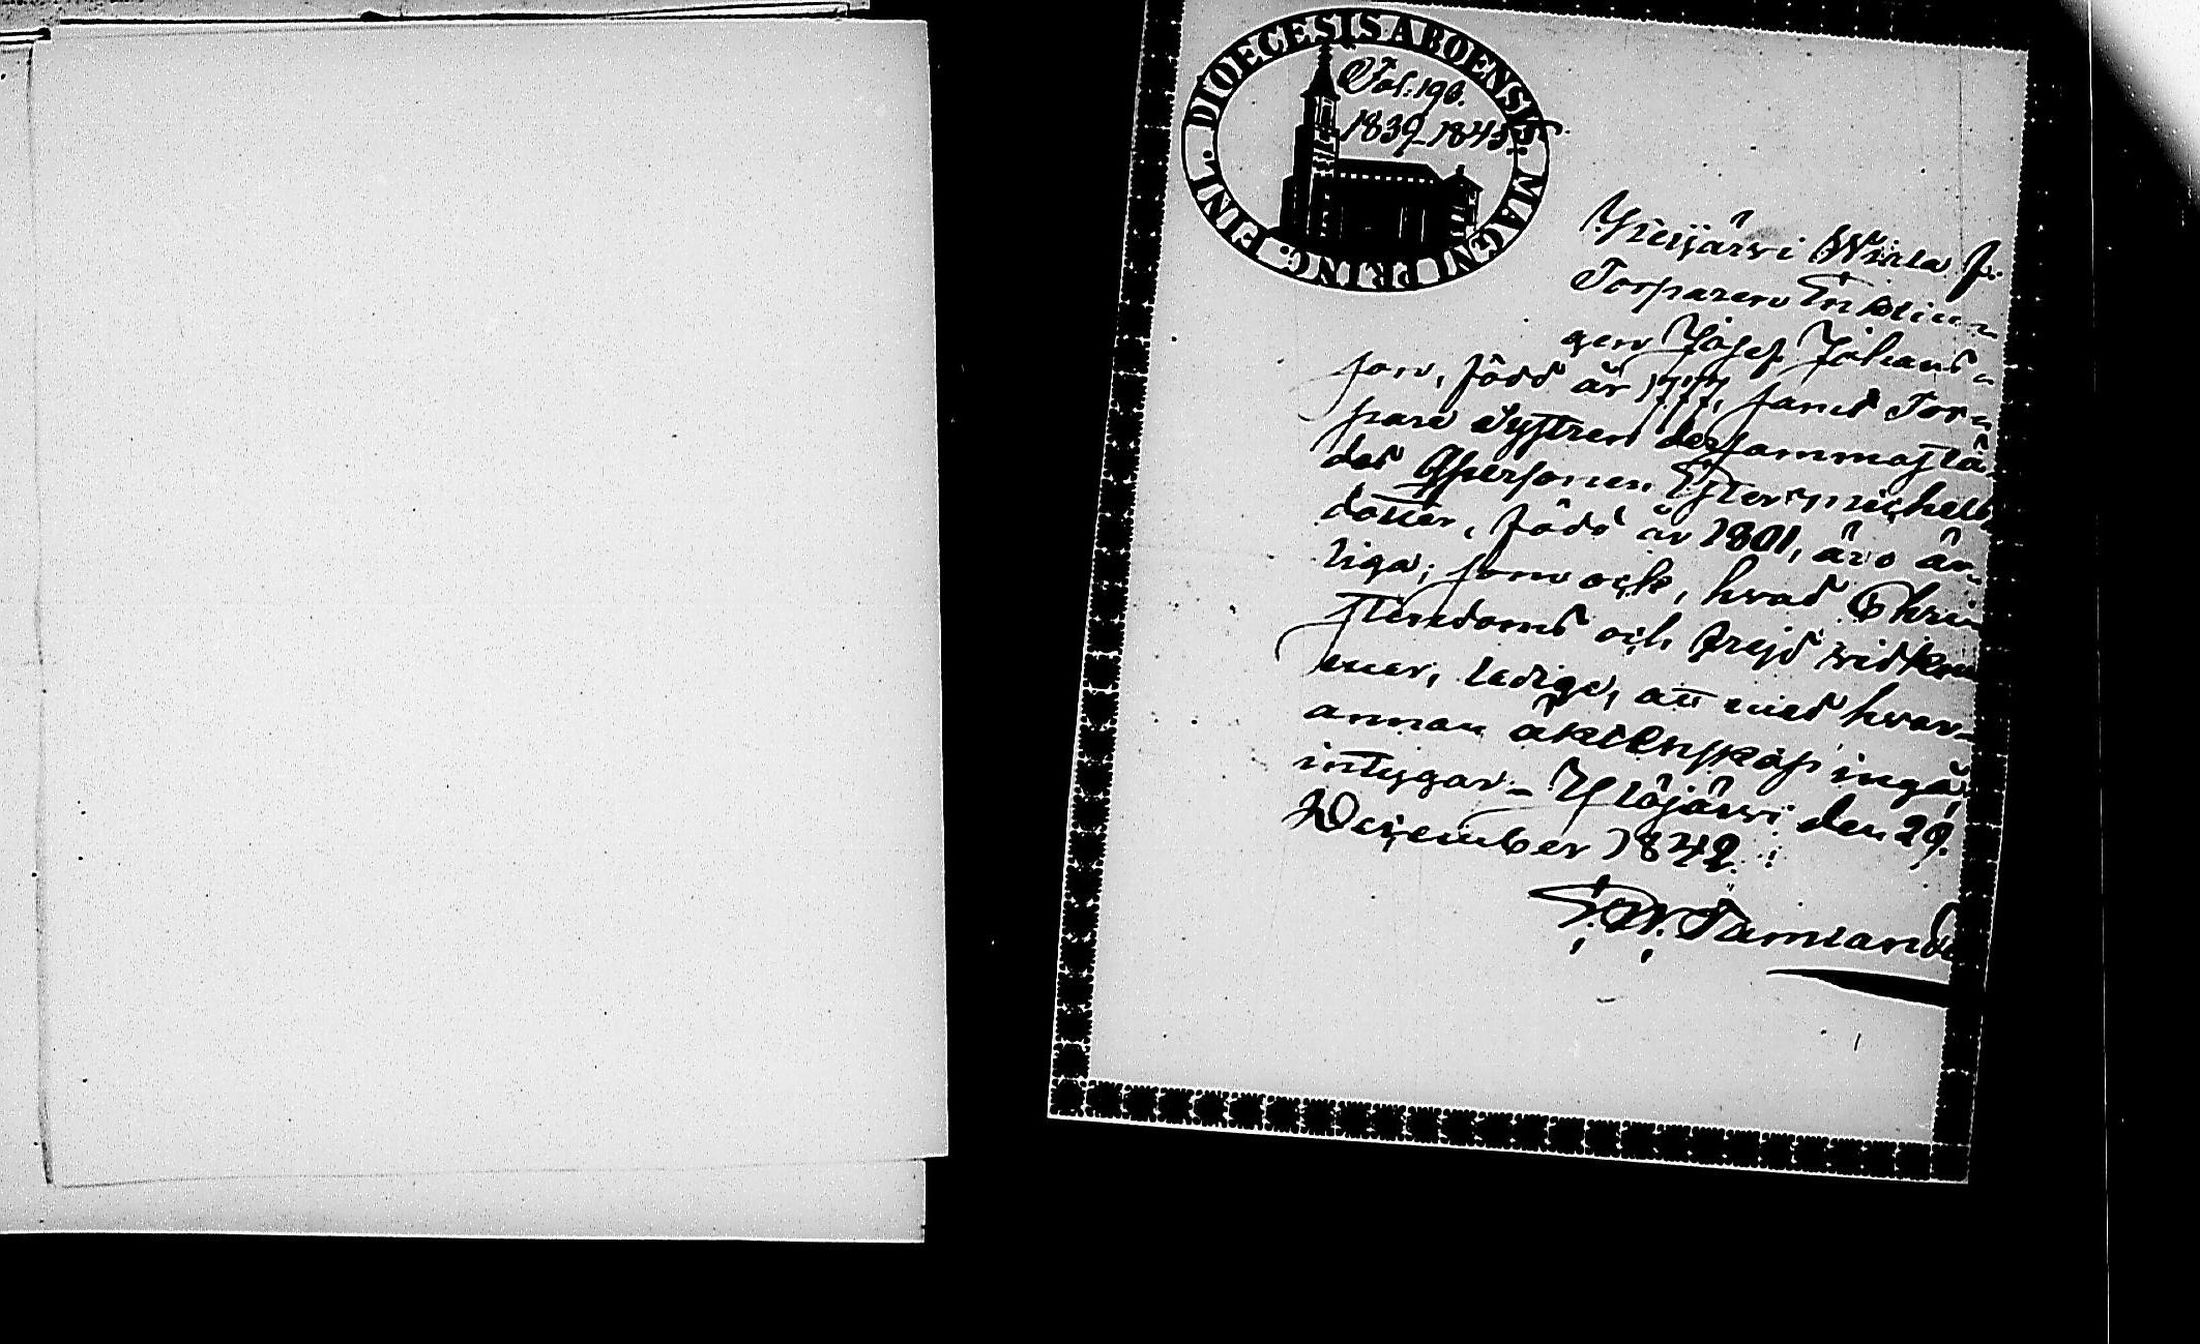 DIOECESIS ABOENSIS. MAGNI PRINC. FINL.
Fol: 190.
1839–1845.
Ylöjärvi
Torparen Enklin-
gen Josef Johans-
son, född år 1777, samt Tor-
pare Systren dersammastä-
des Qspersonen Ester Michels
dotter, född år 1801, äro är-
liga; som ock, hvad Chri-
stendoms och frejd vidkom
mer, lediga, att med hvar-
annan äktenskap ingå,
intygar. – Ylöjärvi den 29.
December 1842.
Tamland